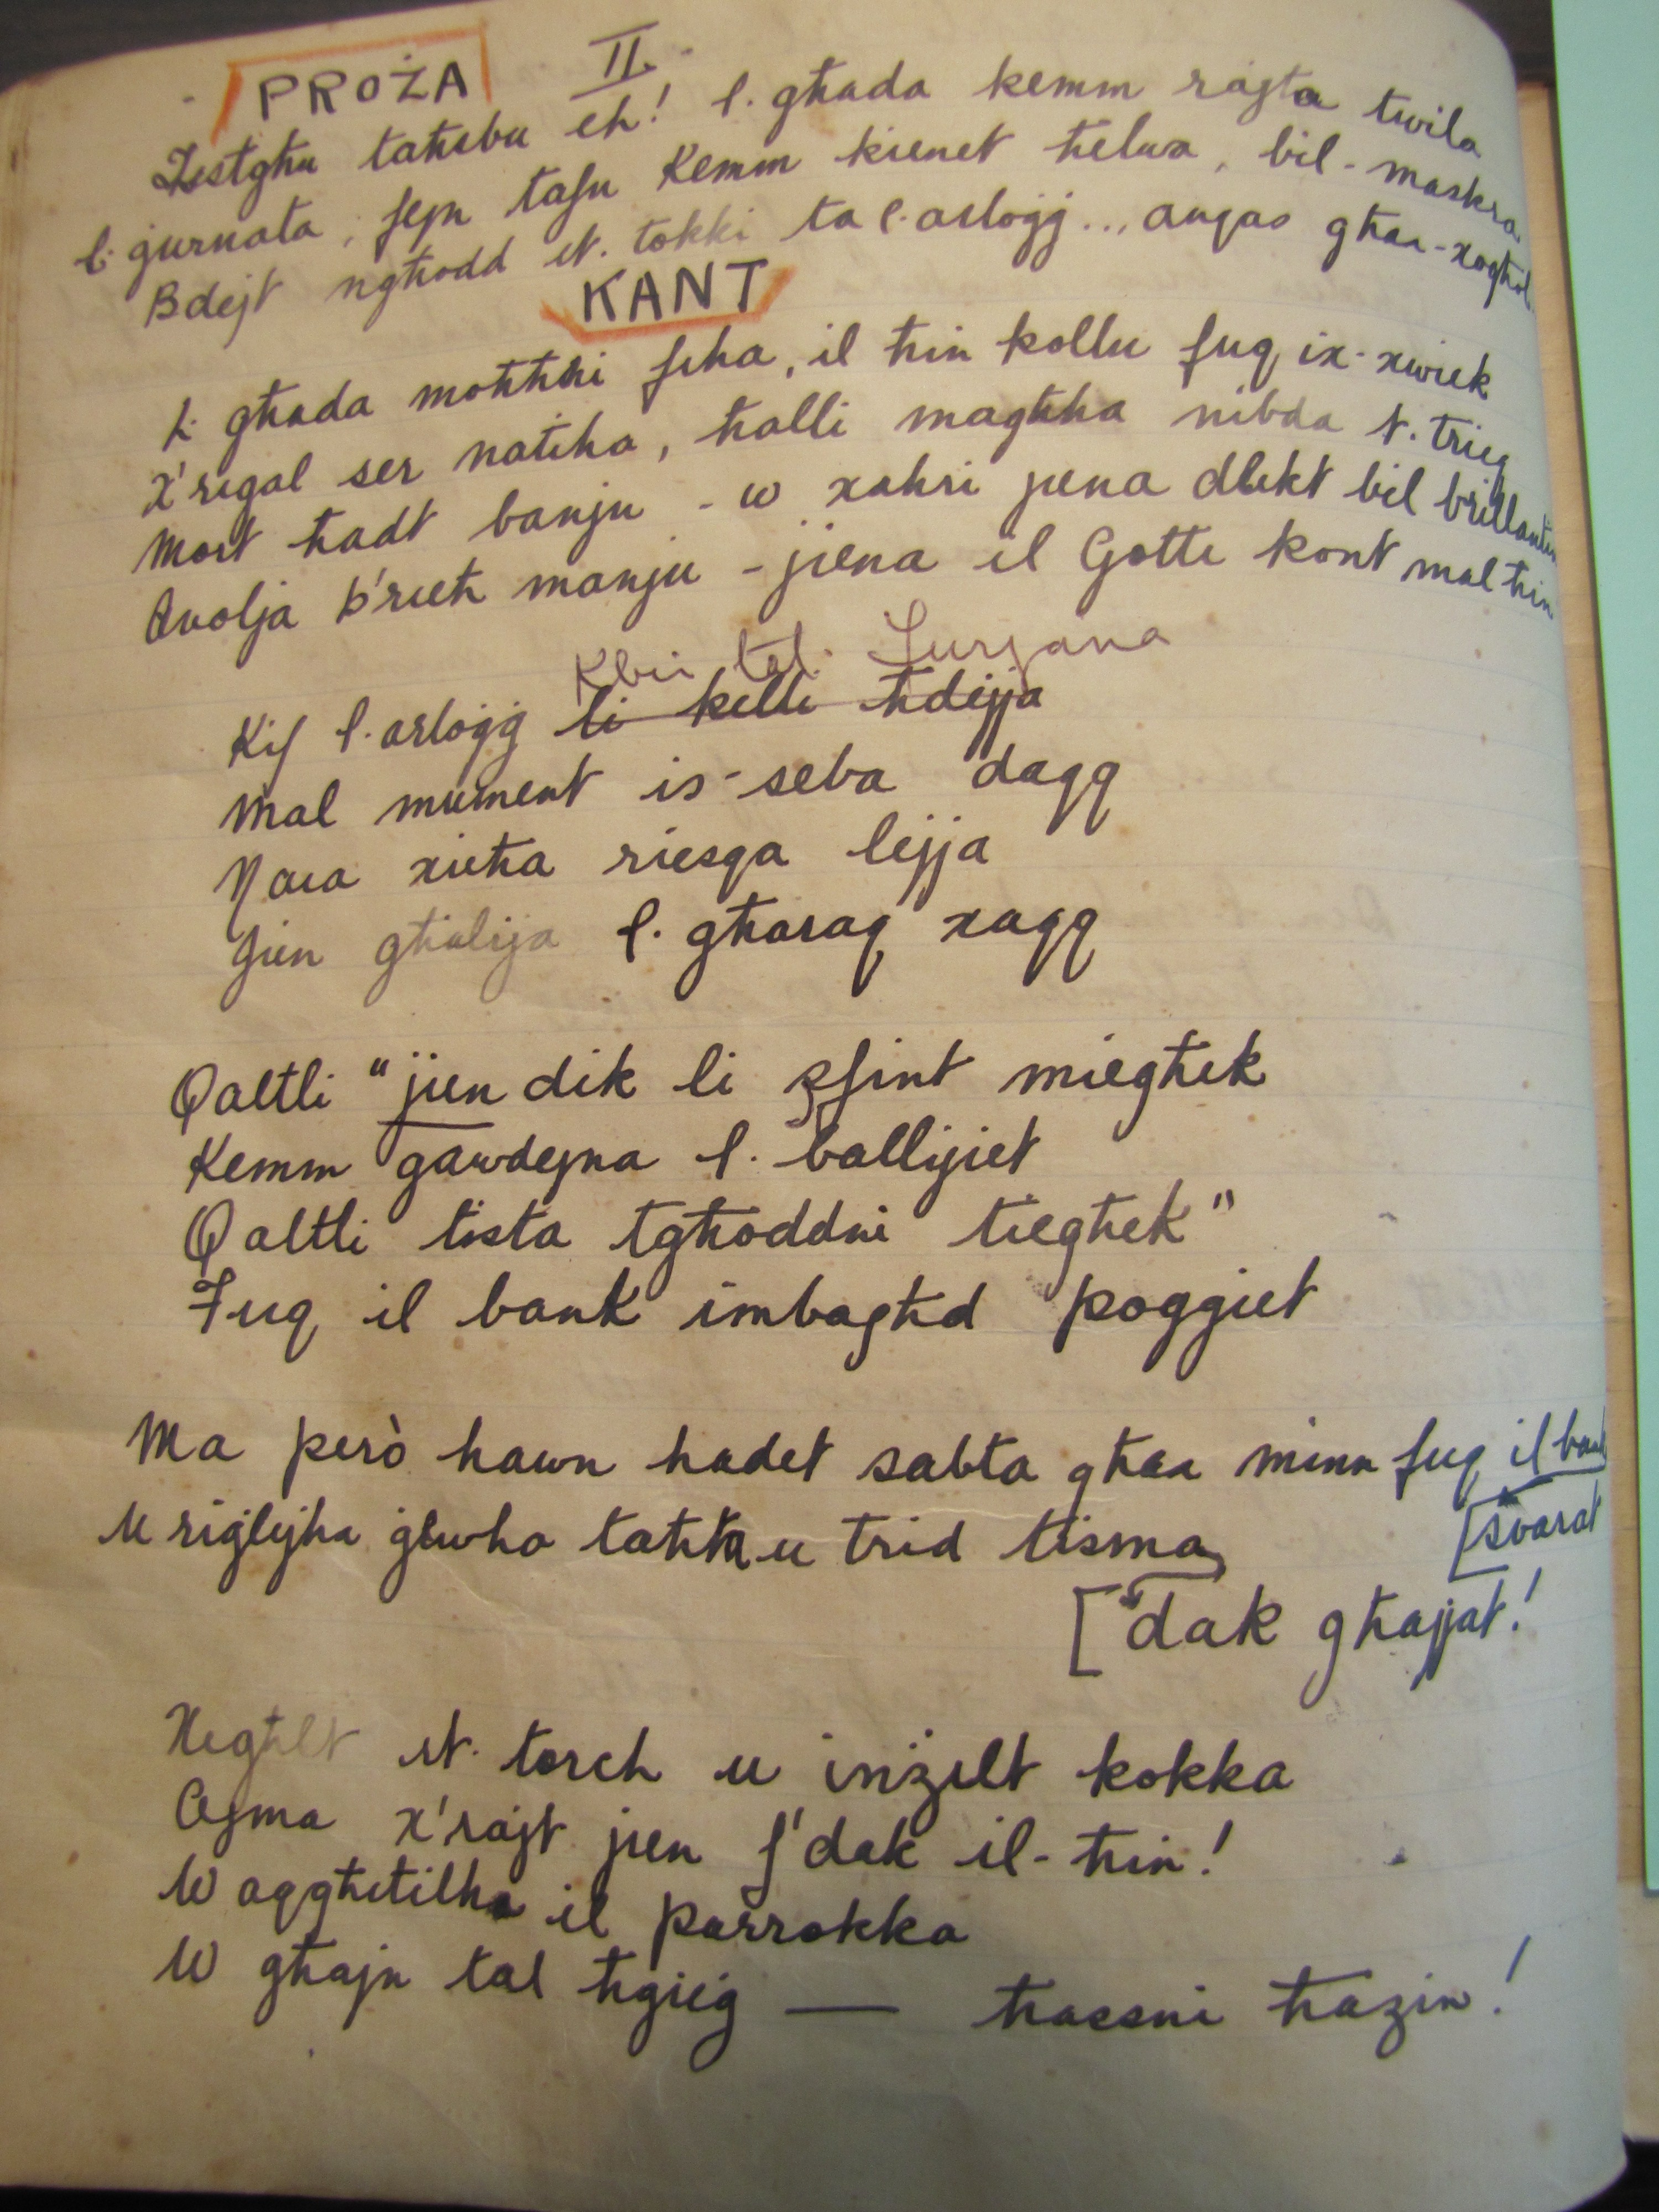 PROŻA II.
Tistghu taħsbu eh! l. għada kemm rajta twila
l. ġurnata, fejn tafu Kemm kienet ħelwa, bil-maskra
Bdejt ngħodd it. tokki ta l. arloġġ... anqas għax-xogħol
KANT
L. għada moħħhi fiha, il ħin kollu fuq ix-xwiek
X'rigal ser natiha, ħalli magħha nibda t. trieq
Mort ħadt banju - w xahri jiena dlikt bil brillantin
Avolja b'rieħ manju - jiena il Gotti kont mal ħin
Kbir tal. Furjana
Kif l. arloġġ li kelli ħdejja
Mal mument is-seba daqq
Nara xieħa riesqa lejja
Jien għalija l. għaraq xaqq
Qaltli "jien dik li żfint miegħek
Kemm gawdejna l. ballijiet
Qaltli tista tgħoddni tiegħek"
Fuq il bank imbagħd poġġiet
Ma però hawn hadet sabta għax minn fuq il bank
[żvarat
U riġlejha ġewha taħta u trid tisma
[dak għajjat!
Xegħelt it. torch u inżilt kokka
Ajma x'rajt jien f'dak il-ħin!
W aqgħetilha il parrokka
W għajn tal ħġieġ — ħaesni ħażin!